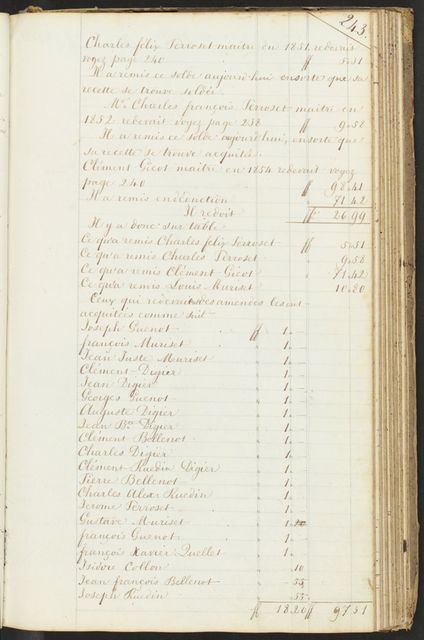 243.
Charles félix Perroset maitre en 1851 redevait
voyez page 240 ƒƒ 5"51
Il a remis ce solde aujourd'hui ensorte que sa
recette se trouve soldée.
Mr. Charles françois Perroset maitre en
1852 redevait voyez page 238 ƒƒ 9"58
Il a remis ce solde aujourd'hui, ensorte que
sa recette se trouve acquitée.
Clément Gicot maitre en 1854 redevait voyez
page 240 ƒƒ 98"41
Il a remis en déduction 71"42
Il redoit ƒƒ 26"99
Il y a donc sur table
Ce qu'a remis Charles felix Perroset ƒƒ 5"51
Ce qu'a remis Charles Perroset 9"58
Ce qu'a remis Clément Gicot 71"42
Ce qu'a remis Louis Muriset 10"80
Ceux qui redevaient des amendes les ont
acquitées comme suit
Joseph Guenot ƒƒ 1"
françois Muriset 1"
Jean Juste Muriset 1"
Clément Digier 1"
Jean Digier 1"
Georges Guenot 1"
Auguste Digier 1"
Jean Bte Digier 1"
Clément Bellenot 1"
Charles Digier 1"
Clément Ruedin Digier 1"
Pierre Bellenot 1"
Charles Alex Ruedin 1"
Jerome Perroset 1"
Gustave Muriset 1"
françois Guenot 1"
françois Xavier Quellet 1"
Isidore Collon "10
Jean françois Bellenot "55
Joseph Ruedin "55
ƒƒ 18"20 ƒƒ 97"31